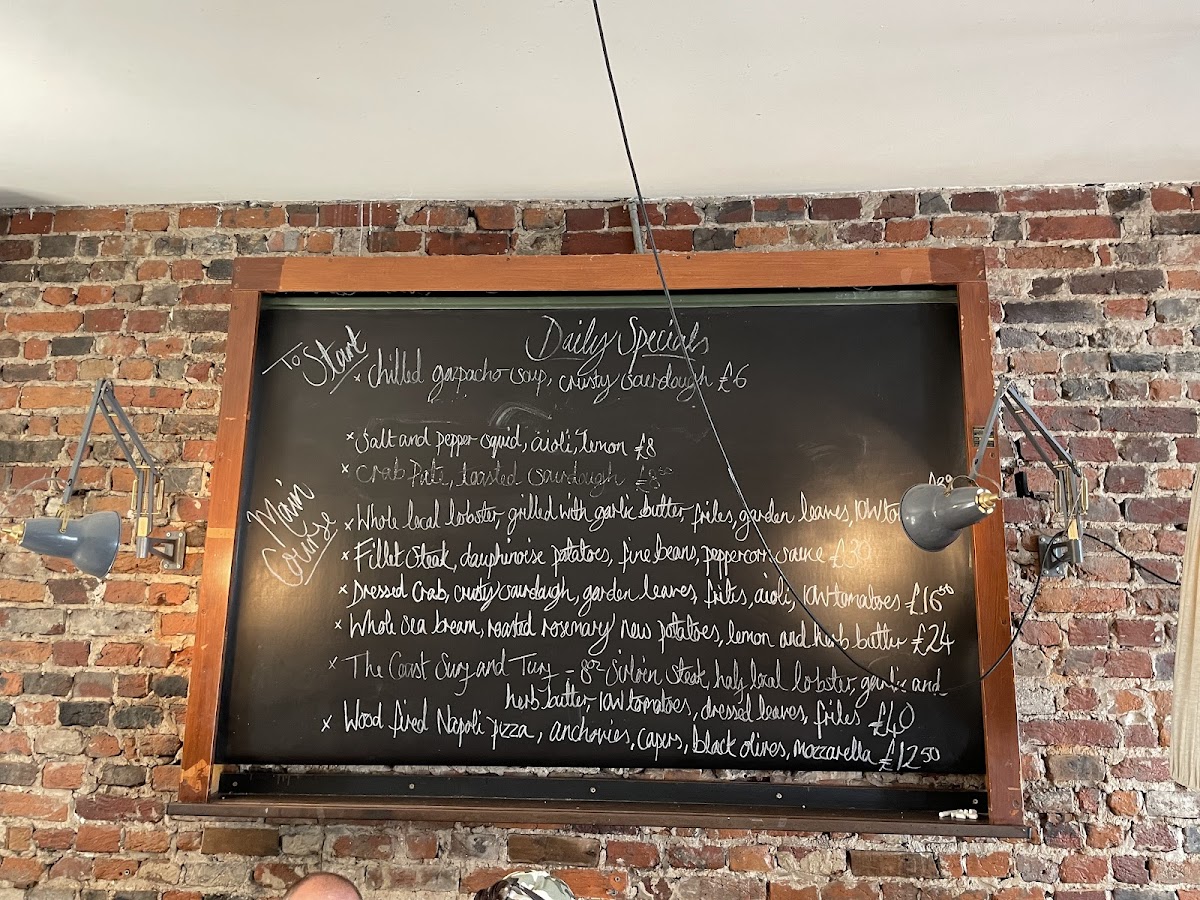 Daily Specials
To Start
× chilled gazpacho soup, crusty sourdough £6
× Salt and pepper squid, aioli, lemon £8
× Crab Pate, toasted sourdough £8.50
Main Course
× Whole local lobster, grilled with garlic butter, frites, garden leaves, IOW to
× Fillet Steak, dauphinoise potatoes, fine beans, peppercorn sauce
× Dressed Crab, crusty sourdough, garden leaves, frites, aioli, IOW tomatoes £16 50
× Whole sea bream, roasted rosemary new potatoes, lemon and herb butter £24
× The Coast Surf and Turf - 8oz Sirloin Steak, half local lobster, garlic and
herb butter, IOW tomatoes, dressed leaves, frites £40
× Wood fired Napoli pizza, anchovies, capers, black olives, mozzarella £12 50